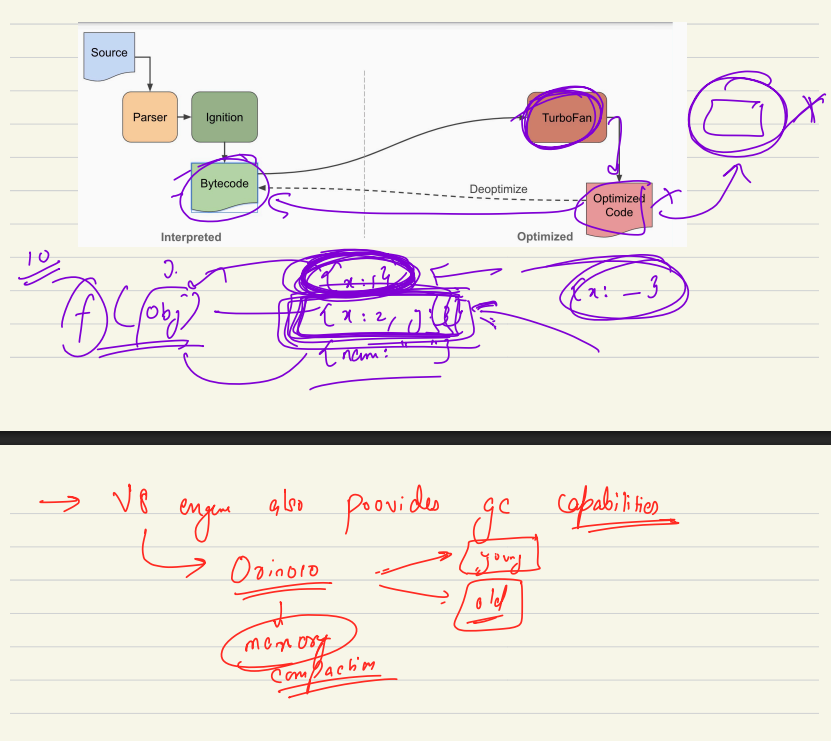 Source
Parser Ignition TurboFan
Bytecode Deoptimize Optimized
Code
Interpreted Optimized
10
f (obj) { x: 1 } { x: _ }
{ x: 2, y: 3 }
{ nam: " " }
→ V8 engine also provides gc capabilities
Orinoco young
old
memory
compaction